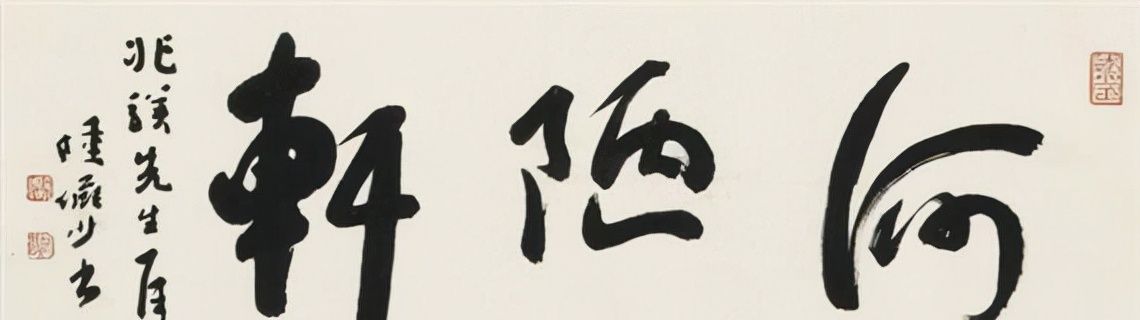 何陋軒
先生屬
陸儼少書